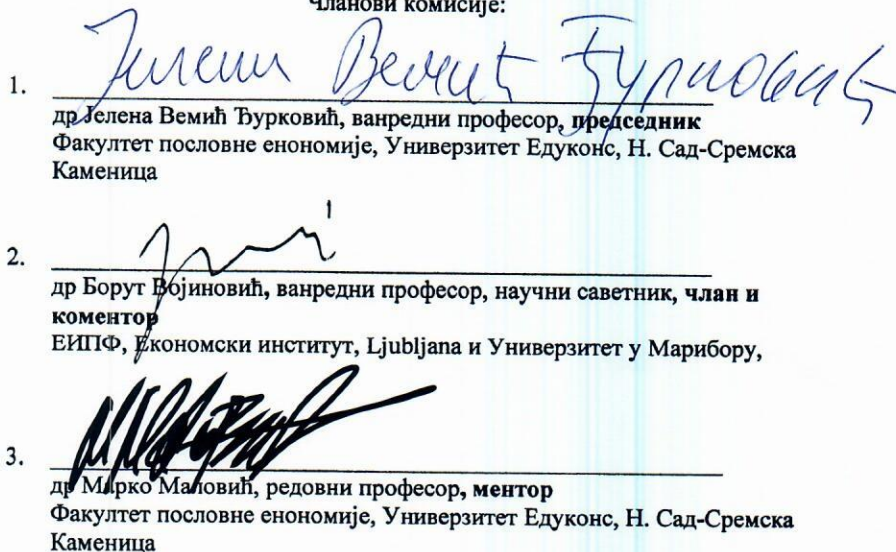 Чланови комисије:
Јелена Вемић Ђурковић
1.
др Јелена Вемић Ђурковић, ванредни професор, председник
Факултет пословне еномије, Универзитет Едуконс, Н. Сад-Сремска
Каменица
2.
др Борут Војиновић, ванредни професор, научни саветник, члан и
коментор
ЕИПФ, Економски институт, Ljubljana и Универзитет у Марибору,
3.
др Марко Маловић, редовни професор, ментор
Факултет пословне еномије, Универзитет Едуконс, Н. Сад-Сремска
Каменица